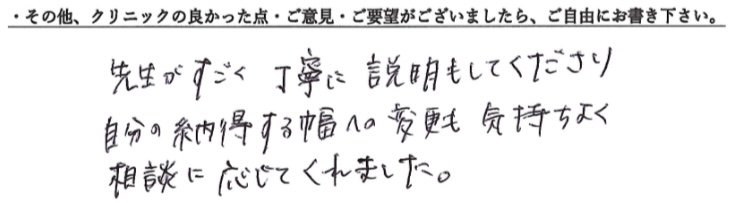 ・その他、クリニックの良かった点・ご意見・ご要望がございましたら、ご自由にお書き下さい。
先生がすごく丁寧に説明もしてくださり
自分の納得する幅への変更も気持ちよく
相談に応じてくれました。